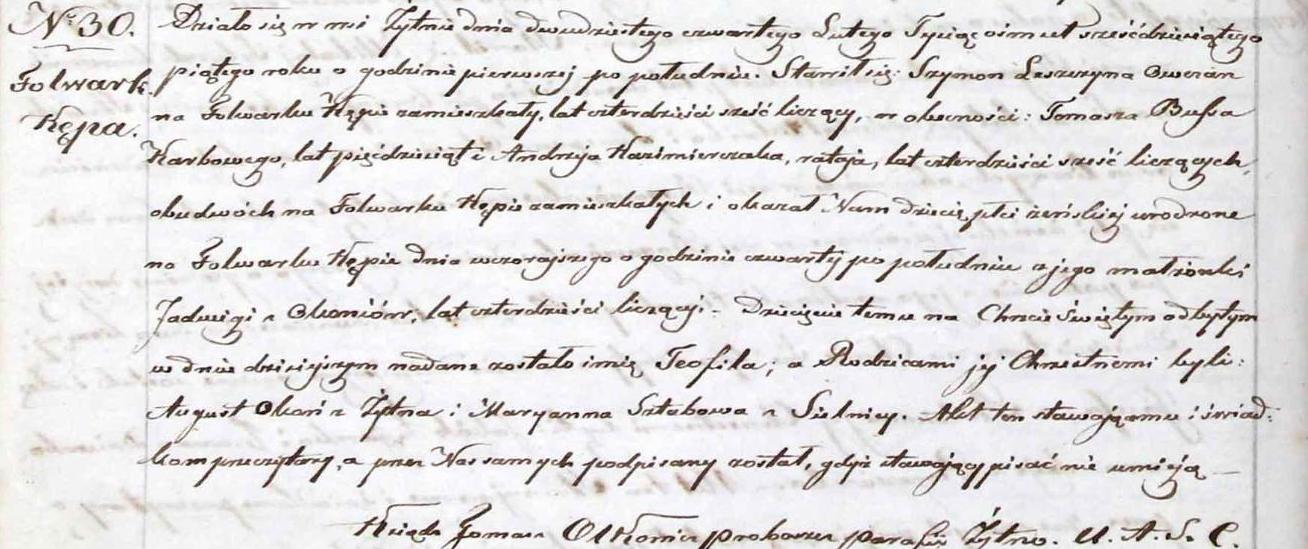 N: 30. Działo się w wsi Żytnie dnia dwudziestego czwartego Lutego Tysiąc ośmset sześćdziesiątego
Folwark piątego roku o godzinie pierwszej po południu. Stawił się: Szymon Leszczyna Owczarz
Kępa. na Folwarku Kępie zamieszkały, lat czterdzieści sześć liczący, w obecności: Tomasza Bussa
Karbowego, lat pięćdziesiąt i Andrzeja Kazimierczaka, rataja, lat czterdzieści sześć liczących,
obudwóch na Folwarku Kępie zamieszkałych i okazał Nam dziecię płci żeńskiej urodzone
na Folwarku Kępie dnia wczorajszego o godzinie czwartej po południu z jego małżonki
Jadwigi z Okoniów, lat czterdzieści liczącej. Dziecięciu temu na Chrzcie Świętym odbytym
w dniu dzisiejszym nadane zostało imię Teofila; a Rodzicami jej Chrzestnemi byli:
August Okoń z Żytna i Maryanna Sztabowa z Sielnicy. Akt ten stawającemu i świad-
kom przeczytany, a przez Nas samych podpisany został, gdyż stawający pisać nie umieją
Ksiądz Tomasz proboszcz parafii Żytno. U. A. S. C.